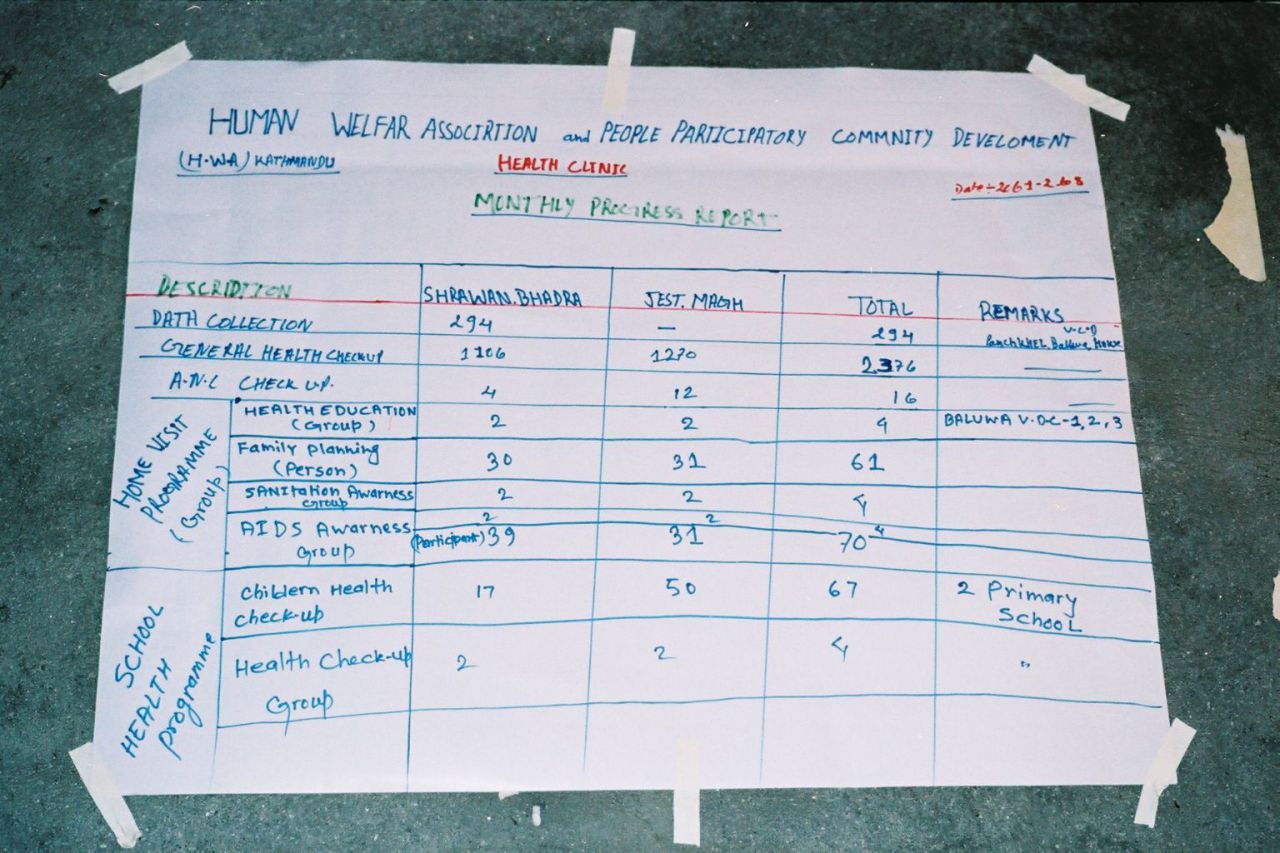 HUMAN WELFAR ASSOCIRTION and PEOPLE PARTICIPATORY COMMNITY DEVELOMENT
(H.W.A) KATHMANDU
HEALTH CLINIC
Date÷2061-2
MONTHLY PROGRESS REPORT
DESCRIDTION SHRAWAN.BHADRA JEST. MAGH TOTAL REMARKS
DATH COLLECTION 294 — 294 Panchkhel, Baluwa,
GENERAL HEALTH CHECKUP 1106 1270 2376 —
A.N.C CHECK UP. 4 12 16 —
HOME VISIT PROGRAMME (Group)
HEALTH EDUCATION 2 2 4 BALUWA V.D.C-1,2,3
(Group)
Family planning 30 31 61
(Person)
SANitation Awarness 2 2 4
Group
AIDS Awarness 2 2 4
Group (Participant) 39 31 70
SCHOOL HEALTH programme
Childern Health 17 50 67 2 Primary
check-up School
Health Check-up 2 2 4 "
Group